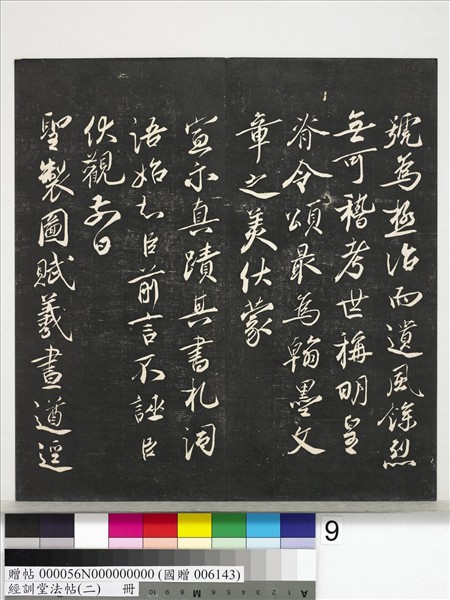 號為極治而遺風餘烈
無可稽考世稱明皇
脊令頌最為翰墨文
章之美伏蒙
宣示真蹟其書札詞
語始知臣前言不誣臣
伏觀前日
聖製圖賦羲畫遒逕
9
贈帖 000056N000000000 (國贈 006143)
經訓堂法帖(二) 冊